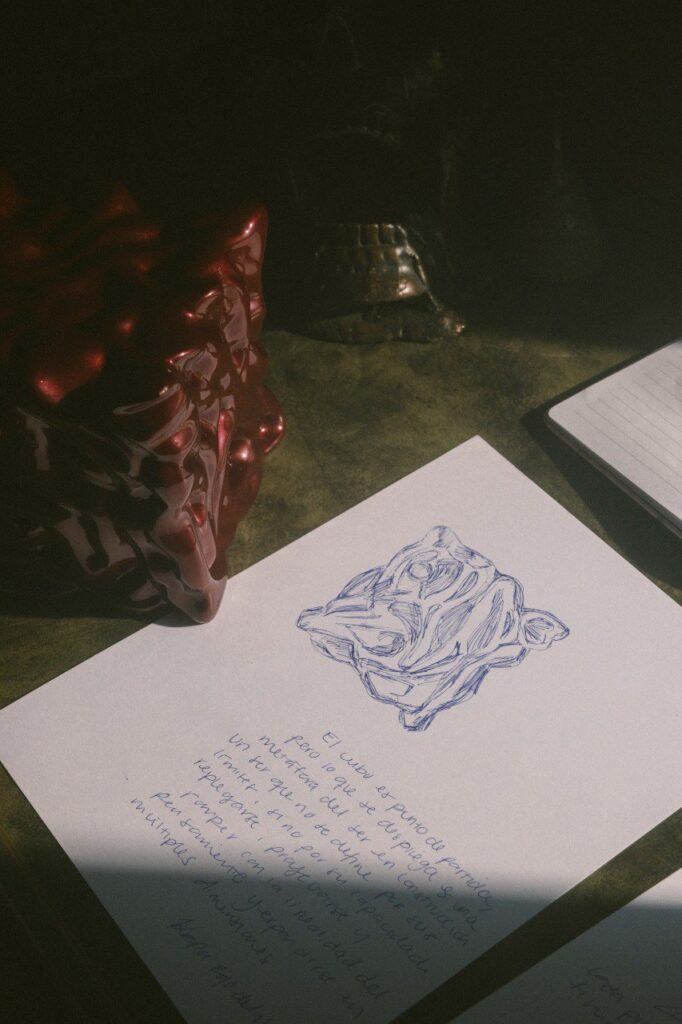 El cubo es punto de partida,
pero lo que se despliega es una
metáfora del ser en construcción
un ser que no se define por sus
límites, si no por su capacidad
replegarse, proyectarse y
romper con la linealidad del
pensamiento y expandirse en
múltiples dimensiones